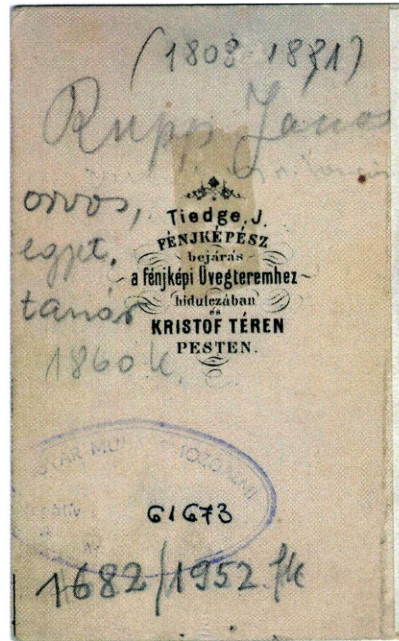 (1808-1881)
Rupp János
orvos,
egyet.
tanár
1860 k.
Tiedge J.
FÉNJKÉPÉSZ
bejárás
a fénjképi Üvegteremhez
hidutczában
és
KRISTOF TÉREN
PESTEN.
61673
1682/1952.fk